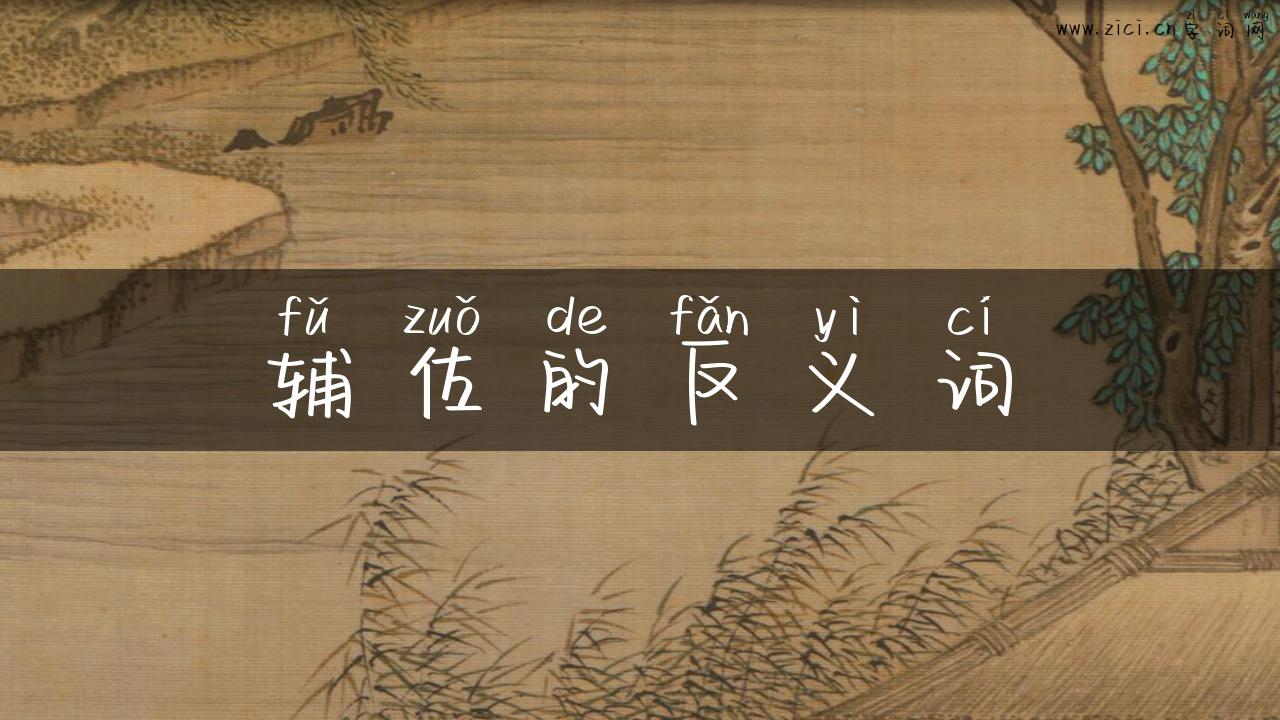 zì cí wǎng
www.zici.cn字词网
fǔ zuǒ de fǎn yì cí
辅佐的反义词